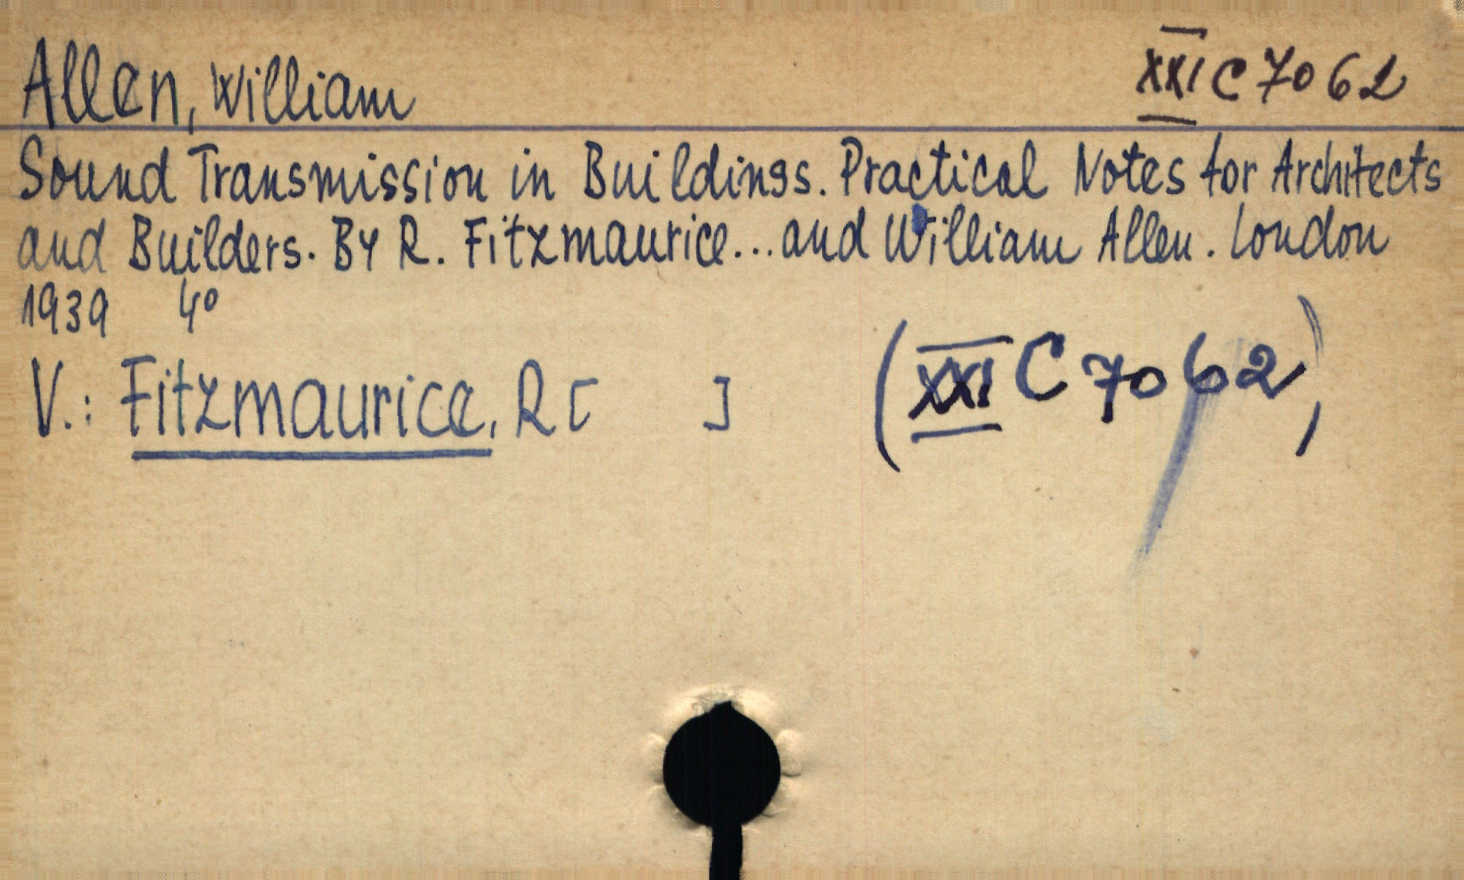 Allen, William XXI C 7062
Sound Transmission in Buildings. Practical Notes for Architects
and Builders. By R. Fitzmaurice... and William Allen. London
1939 4°
V.: Fitzmaurice, R [ ] (XXI C 7062)